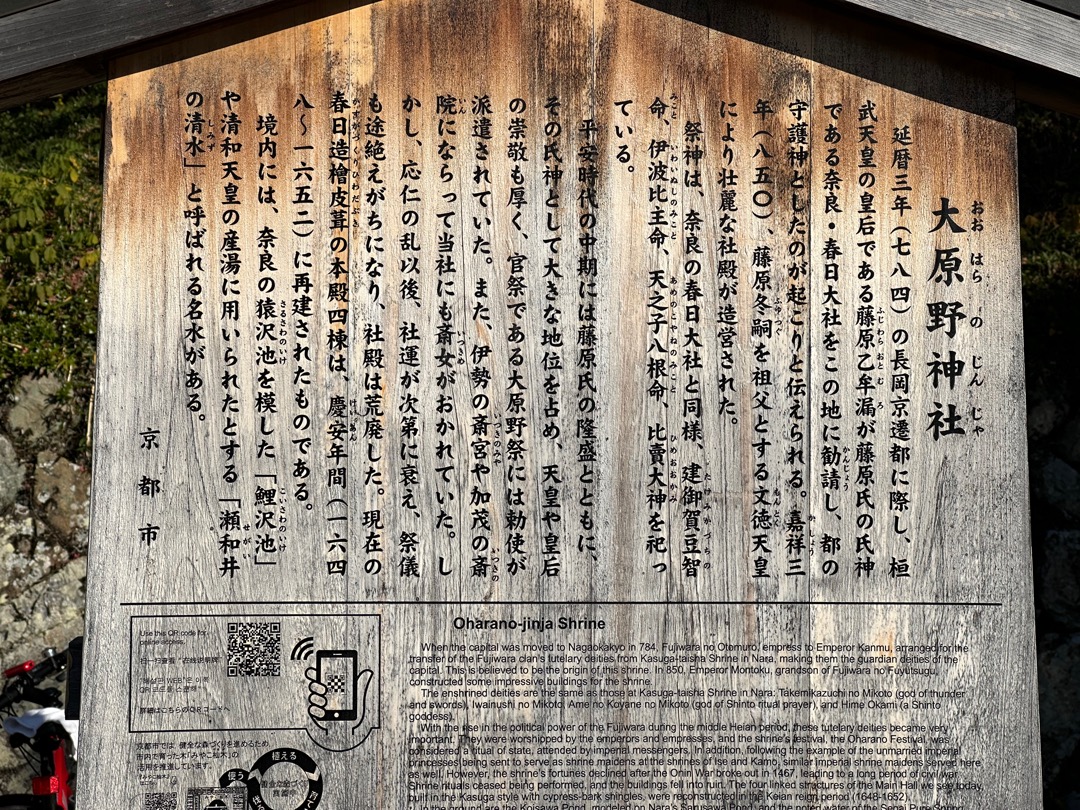 大原野神社
おおはらのじんじゃ
延暦三年（七八四）の長岡京遷都に際し、桓
武天皇の皇后である藤原乙牟漏が藤原氏の氏神
である奈良・春日大社をこの地に勧請し、都の
守護神としたのが起こりと伝えられる。嘉祥三
年（八五〇）、藤原冬嗣を祖父とする文徳天皇
により壮麗な社殿が造営された。
祭神は、奈良の春日大社と同様、建御賀豆智
命、伊波比主命、天之子八根命、比賣大神を祀っ
ている。
平安時代の中期には藤原氏の隆盛とともに、
その氏神として大きな地位を占め、天皇や皇后
の崇敬も厚く、官祭である大原野祭には勅使が
派遣されていた。また、伊勢の斎宮や加茂の斎
院にならって当社にも斎女がおかれていた。し
かし、応仁の乱以後、社運が次第に衰え、祭儀
も途絶えがちになり、社殿は荒廃した。現在の
春日造檜皮葺の本殿四棟は、慶安年間（一六四
八～一六五二）に再建されたものである。
境内には、奈良の猿沢池を模した「鯉沢池」
や清和天皇の産湯に用いられたとする「瀬和井
の清水」と呼ばれる名水がある。
京都市
Oharano-jinja Shrine
When the capital was moved to Nagaokakyo in 784, Fujiwara no Otomuro, empress to Emperor Kanmu, arranged for the
transfer of the Fujiwara clan's tutelary deities from Kasuga-taisha Shrine in Nara, making them the guardian deities of the
capital. This is believed to be the origin of this shrine. In 850, Emperor Montoku, grandson of Fujiwara no Fuyutsugu,
constructed some impressive buildings for the shrine.
The enshrined deities are the same as those at Kasuga-taisha Shrine in Nara: Takemikazuchi no Mikoto (god of thunder
and swords), Iwainushi no Mikoto, Ame no Koyane no Mikoto (god of Shinto ritual prayer), and Hime Okami (a Shinto
goddess).
With the rise in the political power of the Fujiwara during the middle Heian period, these tutelary deities became very
important. They were worshipped by the emperors and empresses, and the shrine's festival, the Oharano Festival, was
considered a ritual of state, attended by imperial messengers. In addition, following the example of the unmarried imperial
princesses being sent to serve as shrine maidens at the shrines of Ise and Kamo, similar imperial shrine maidens served here
as well. However, the shrine's fortunes declined after the Onin War broke out in 1467, leading to a long period of civil war.
Shrine rituals ceased being performed, and the buildings fell into ruin. The four linked structures of the Main Hall we see today,
built in the Kasuga style with cypress-bark shingles, were reconstructed in the Keian reign period (1648-1652).
Use this QR code for
online access.
扫一扫查看“在线说明牌”
QR 코드를 스캔해
詳細はこちらのQRコードへ
京都市では、健全な森づくりを進めるため、
市内で育った木「みやこ杣木」の
活用を推進しています。
植える
使う